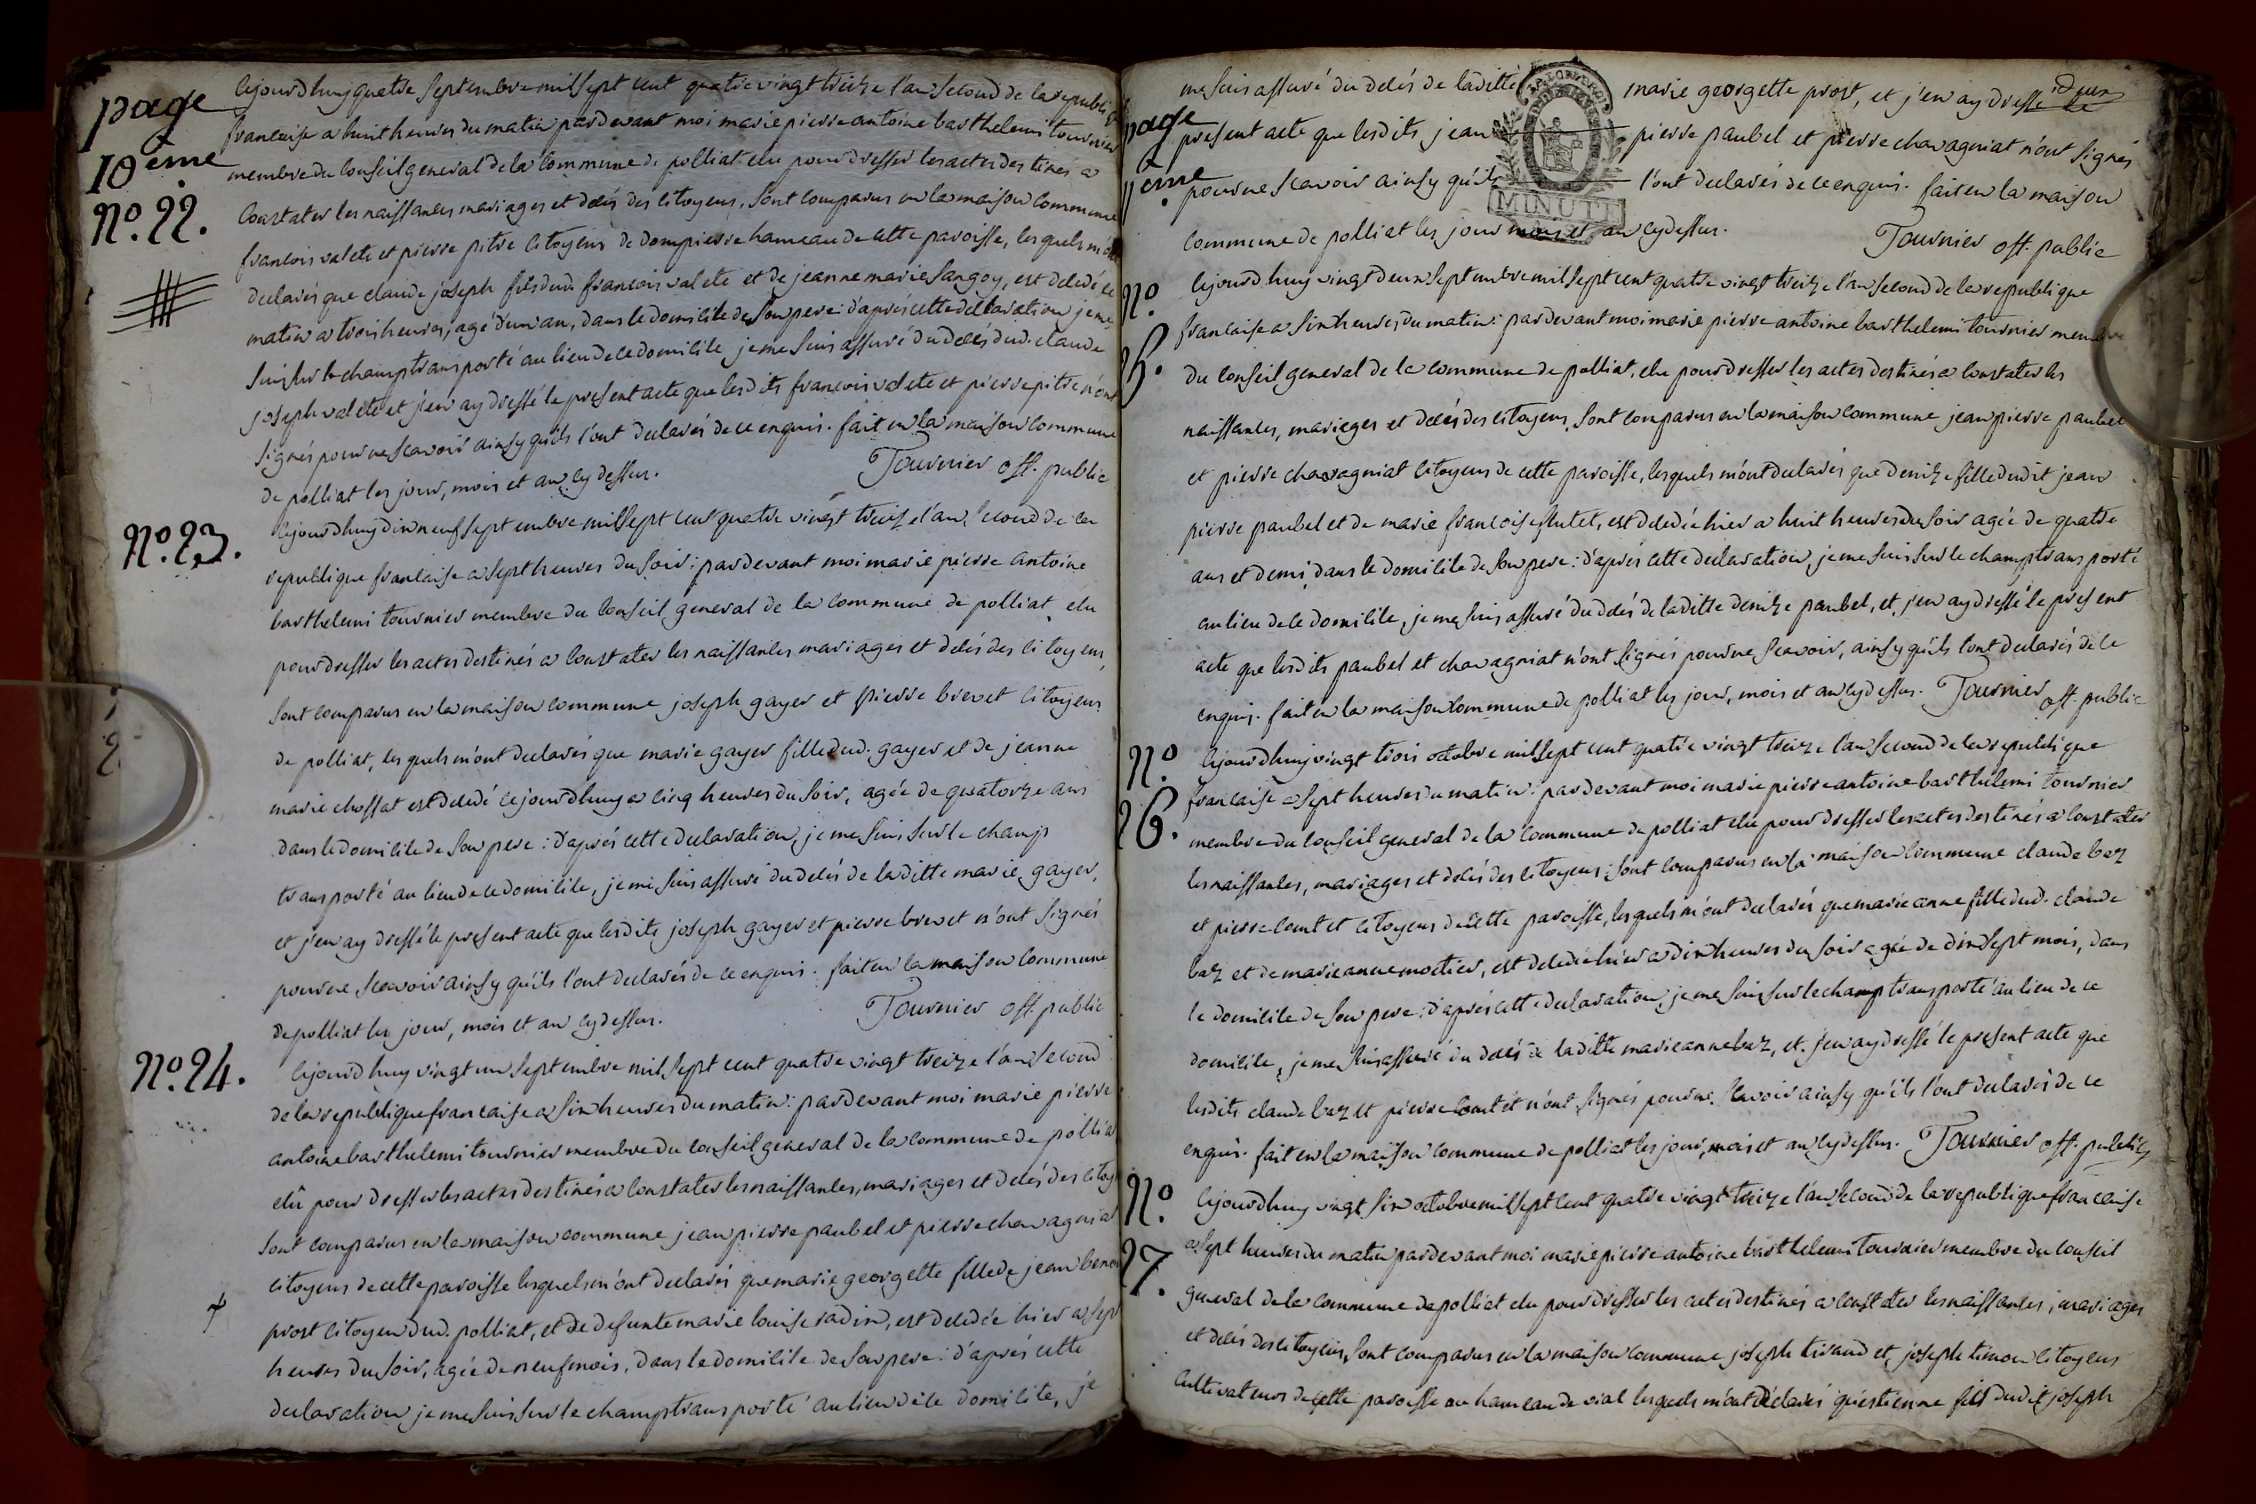 page
10eme
No. 22.
Cejourdhuy quatre septembre mil sept cent quatrevingt treize l'an second de la republi
francaise a huit heures du matin pardevant moi marie pierre antoine barthelemi tournier
membre du conseil general de la commune de polliat elu pour dresser les actes destinés a
constater les naissances mariages et decés des citoyens, sont comparus en la maison commune
francois valete et pierre pitre citoyens de dompierre hameau de cette paroisse, lesquels m'ont
declarés que claude joseph fils dud. francois valete et de jeanne marie sangoy, est decedé ce
matin a trois heures, agé d'un an, dans le domicile de son pere: d'aprés cette declaration je me
suis sur le champ transporté au lieu de ce domicile je me suis assuré du decés dud. claude
joseph valete et j'en ay dressé le present acte que lesdits francois valete et pierre pitre n'ont
signés pour ne scavoir ainsy qu'ils l'ont declarés de ce enquis. fait en la maison commune
de polliat les jour, mois et an cy dessus. Tournier off. public
No. 23.
Cejourdhuy dix neuf septembre mil sept cent quatre vingt treize l'an second de la
republique francaise a sept heures du soir: pardevant moi marie pierre antoine
barthelemi tournier membre du conseil general de la commune de polliat elu
pour dresser les actes destinés a constater les naissances mariages et decés des citoyens,
sont comparus en la maison commune joseph gayer et pierre brevet citoyens
de polliat, lesquels m'ont declarés que marie gayer fille dud. gayer et de jeanne
marie chossat est decedé cejourdhuy a cinq heures du soir, agée de quatorze ans
dans le domicile de son pere: d'aprés cette declaration, je me suis sur le champ
transporté au lieu de ce domicile, je me suis assuré du decés de laditte marie gayer,
et j'en ay dressé le present acte que lesdits joseph gayer et pierre brevet n'ont signés
pour ne scavoir ainsy qu'ils l'ont declarés de ce enquis. fait en la maison commune
de polliat les jour, mois et an cy dessus. Tournier off. public
No. 24.
Cejourdhuy vingt un septembre mil sept cent quatre vingt treize l'an second
de la republique francaise a six heures du matin: pardevant moi marie pierre
antoine barthelemi tournier membre du conseil general de la commune de pollia
elû pour dresser les actes destinés a constater les naissances, mariages et decés des citoy
sont comparus en la maison commune jean pierre paubel et pierre chavagniat
citoyens de cette paroisse lesquels m'ont declarés que marie georgette fille de jean
prost citoyen dud. polliat, et de defunte marie louise radix, est decedée hier a sept
heures du soir, agée de neuf mois, dans le domicile de son pere: d'aprés cette
declaration je me suis sur le champ transporté au lieu de ce domicile, je
me suis assuré du decés de laditte marie georgette prost, et j'en ay dressé le
page
11eme
present acte que lesdits jean pierre paubel et pierre chavagniat n'ont signés
pour ne scavoir ainsy qu'ils l'ont declarés de ce enquis. fait en la maison
MINUTE
commune de polliat les jour mois et an cy dessus. Tournier off. public
No
25.
Cejourdhuy vingt deux septembre mil sept cent quatre vingt treize l'an second de la republique
francaise a six heures du matin: pardevant moi marie pierre antoine barthelemi tournier membre
du conseil general de la commune de polliat, elu pour dresser les actes destinés a constater les
naissances, mariages et decés des citoyens, sont comparus en la maison commune jean pierre paubel
et pierre chavagniat citoyens de cette paroisse, lesquels m'ont declarés que denize fille dudit jean
pierre paubel et de marie francoise flutet, est decedée hier a huit heures du soir agée de quatre
ans et demi, dans le domicile de son pere: d'aprés cette declaration, je me suis sur le champ transporté
au lieu de ce domicile, je me suis assuré du decés de laditte denize paubel, et j'en ay dressé le present
acte que lesdits paubel et chavagniat n'ont signés pour ne scavoir, ainsy qu'ils l'ont declarés de ce
enquis. fait en la maison commune de polliat les jour, mois et an cy dessus. Tournier off. public
No.
26.
Cejourdhuy vingt trois octobre mil sept cent quatre vingt treize l'an second de la republique
francaise a sept heures du matin: pardevant moi marie pierre antoine barthelemi tournier
membre du conseil general de la commune de polliat elu pour dresser les actes destinés a constater
les naissances, mariages et decés des citoyens: sont comparus en la maison commune claude bez
et pierre comtet citoyens de cette paroisse, lesquels m'ont declarés que marie anne fille dud. claude
bez et de marie anne moctier, est decedée hier a dix heures du soir agée de dix sept mois, dans
le domicile de son pere: d'aprés cette declaration je me suis sur le champ transporté au lieu de ce
domicile, je me suis assuré du decés de laditte marie anne bez, et j'en ay dressé le present acte que
lesdits claude bez et pierre comtet n'ont signés pour ne scavoir ainsy qu'ils l'ont declarés de ce
enquis. fait en la maison commune de polliat les jour, mois et an cy dessus. Tournier off. public
No.
27.
Cejourdhuy vingt six octobre mil sept cent quatre vingt treize l'an second de la republique francaise
a sept heures du matin pardevant moi marie pierre antoine barthelemi tournier membre du conseil
general de la commune de polliat elu pour dresser les actes destinés a constater les naissances, mariages
et decés des citoyens, sont comparus en la maison commune joseph tivand et joseph timon citoyens
cultivateurs de cette paroisse au hameau de vial lesquels m'ont declarés qu'estienne fils dudit joseph